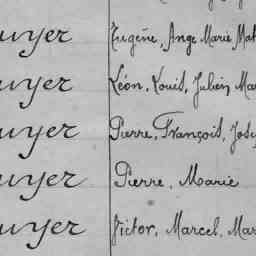 uyer Eugène, Ange Marie Mat
uyer Léon, Louis, Julien Ma
uyer Pierre, François, Jose
uyer Pierre, Marie
uyer Victor, Marcel, Mar